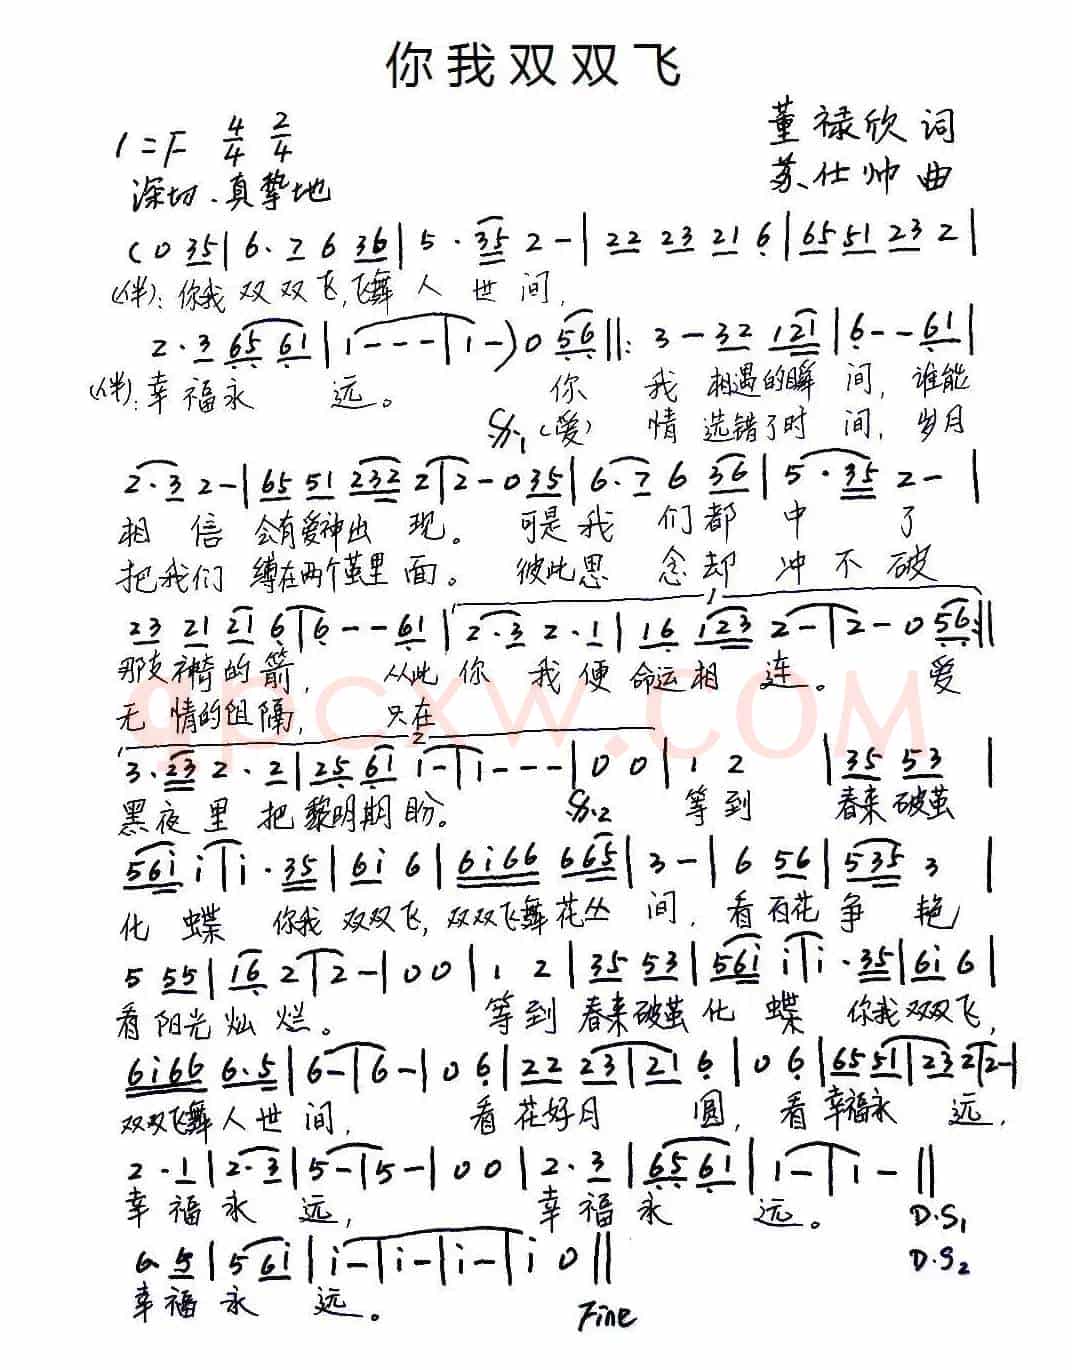 你我双双飞
1=F 4/4 2/4
董禄欣 词
深切、真挚地
苏仕帅 曲
(0 35 | 6·7 6 36 | 5·35 2 - | 22 23 21 6 | 65 51 23 2 |
(伴):你我双双飞,飞舞人世间,
2·3 65 61 | i - - - | i -) 0 56 ||: 3 - 32 121 | 6 - - 61 |
(伴):幸福永远。 你我相遇的瞬间,谁能
𝄋1 (爱)情选错了时间,岁月
2·3 2 - | 65 51 232 2 | 2 - 0 35 | 6·7 6 36 | 5·35 2 - |
相信会有爱神出现。可是我们都中了
把我们缚在两个茧里面。彼此思念却冲不破
23 21 21 6 | 6 - - 61 | 2·3 2·1 | 16 123 2 - | 2 - 0 56 :||
1
那支神奇的箭,从此你我便命运相连。爱
无情的阻隔,只在
2
3·23 2·2 | 25 61 i - | i - - - | 0 0 | 1 2 | 35 53 |
黑夜里把黎明期盼。 𝄋2 等到春来破茧
56i i | i·35 | 6i 6 | 6i66 665 | 3 - | 6 56 | 535 3 |
化蝶你我双双飞,双双飞舞花丛间,看百花争艳
5 55 | 16 2 | 2 - | 0 0 | 1 2 | 35 53 | 56i i | i·35 | 6i 6 |
看阳光灿烂。 等到春来破茧化蝶你我双双飞,
6i66 6·5 | 6 - | 6 - | 0 6 | 22 23 | 21 6 | 0 6 | 65 51 | 23 2 | 2 - |
双双飞舞人世间, 看花好月圆,看幸福永远,
2·1 | 2·3 | 5 - | 5 - | 0 0 | 2·3 | 65 61 | 1 - | 1 - ||
幸福永远, 幸福永远。 D.S1
6 5 | 5 6i | i - | i - | i - | i 0 || D.S2
幸福永远。 Fine
qpcxw.COM